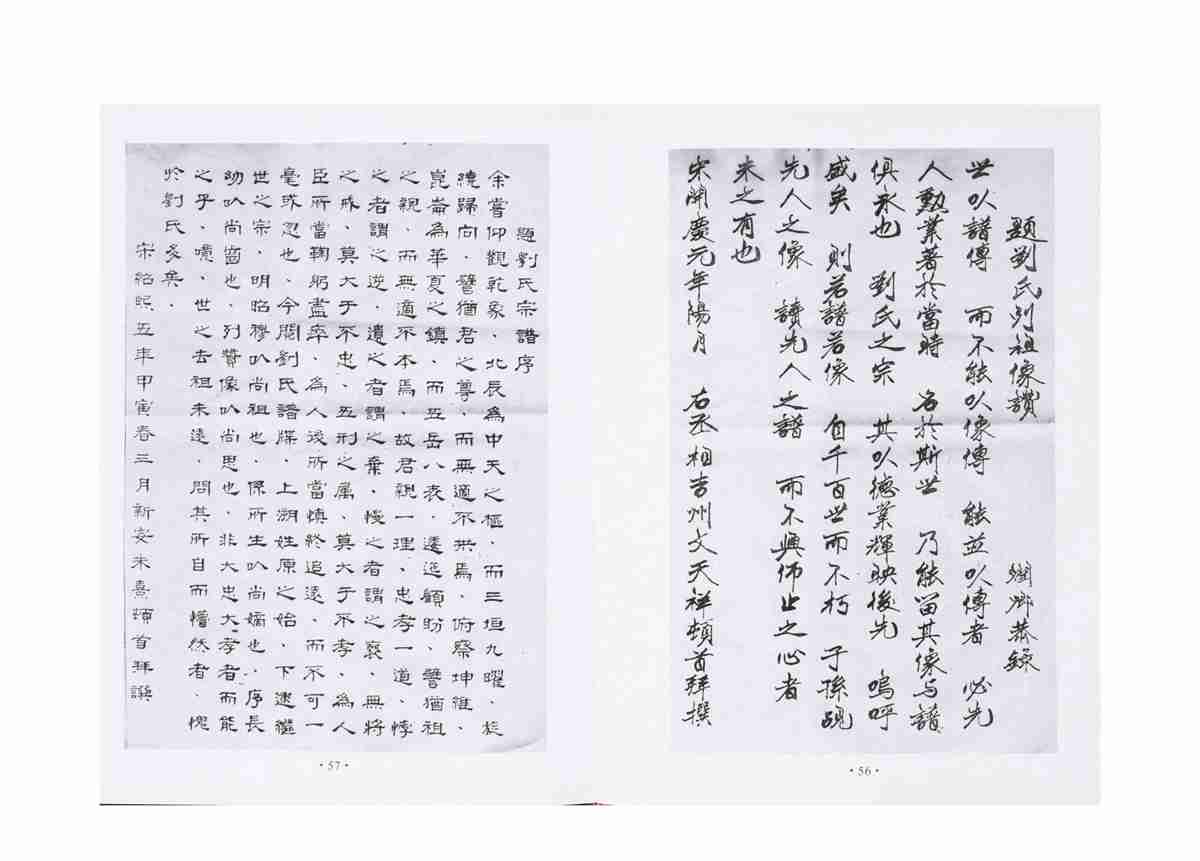 題劉氏列祖像讚 恭錄
世以譜傳 而不能以像傳 能並以傳者 必先
人勲業著於當時 名於斯世 乃能留其像与譜
俱永也 劉氏之宗 其以德業輝映後先 嗚呼
盛矣 則若譜若像 自千百世而不朽 子孫覩
先人之像 讀先人之譜 而不興仰止之心者
未之有也
宋開慶元年陽月 右丞相吉州文天祥頓首拜撰
·56·
題劉氏宗譜序
余嘗仰觀乾象、北辰為中天之樞、而三垣九曜、旋
繞歸向、譬猶君之尊、而無適不拱焉、俯察坤維、
崑崙為華夏之鎮、而五岳八表、逶迤顧盼、譬猶祖
之親、而無適不本焉、故君親一理、忠孝一道、悖
之者謂之逆、遺之者謂之棄、慢之者謂之褻、無將
之戒、莫大于不忠、五刑之属、莫大于不孝、為人
臣所當鞠躬盡卒、為人後所當慎終追遠、而不可一
毫或忽也、今閱劉氏譜牒、上溯姓原之始、下逮繼
世之宗、明昭穆以尚祖也、係所生以尚嫡也、序長
幼以尚齒也、列贊像以尚思也、非大忠大孝者而能
之乎、噫、世之去祖未遠、問其所自而懵然者、愧
於劉氏多矣、
宋紹熙五年甲寅春三月新安朱熹頓首拜譔
·57·